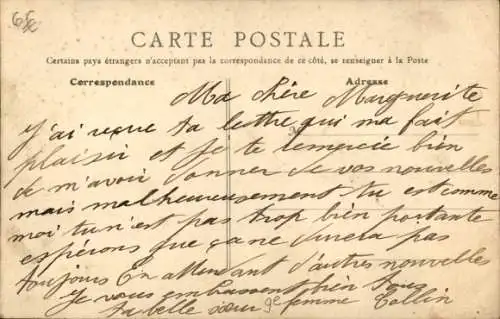 CARTE POSTALE
Certains pays étrangers n'acceptant pas la correspondance de ce côté, se renseigner à la Poste
Correspondance
Adresse
Ma chère Marguerite
J'ai reçue ta lettre qui ma fait
plaisir et je te remercie bien
de m'avoir donner de vos nouvelles
mais malheureusement tu est comme
moi tu n'est pas trop bien portante
espérons que ça ne durera pas
toujours En attendant d'autres nouvelles
Je vous embrassent bien tous
ta belle sœur femme Collin